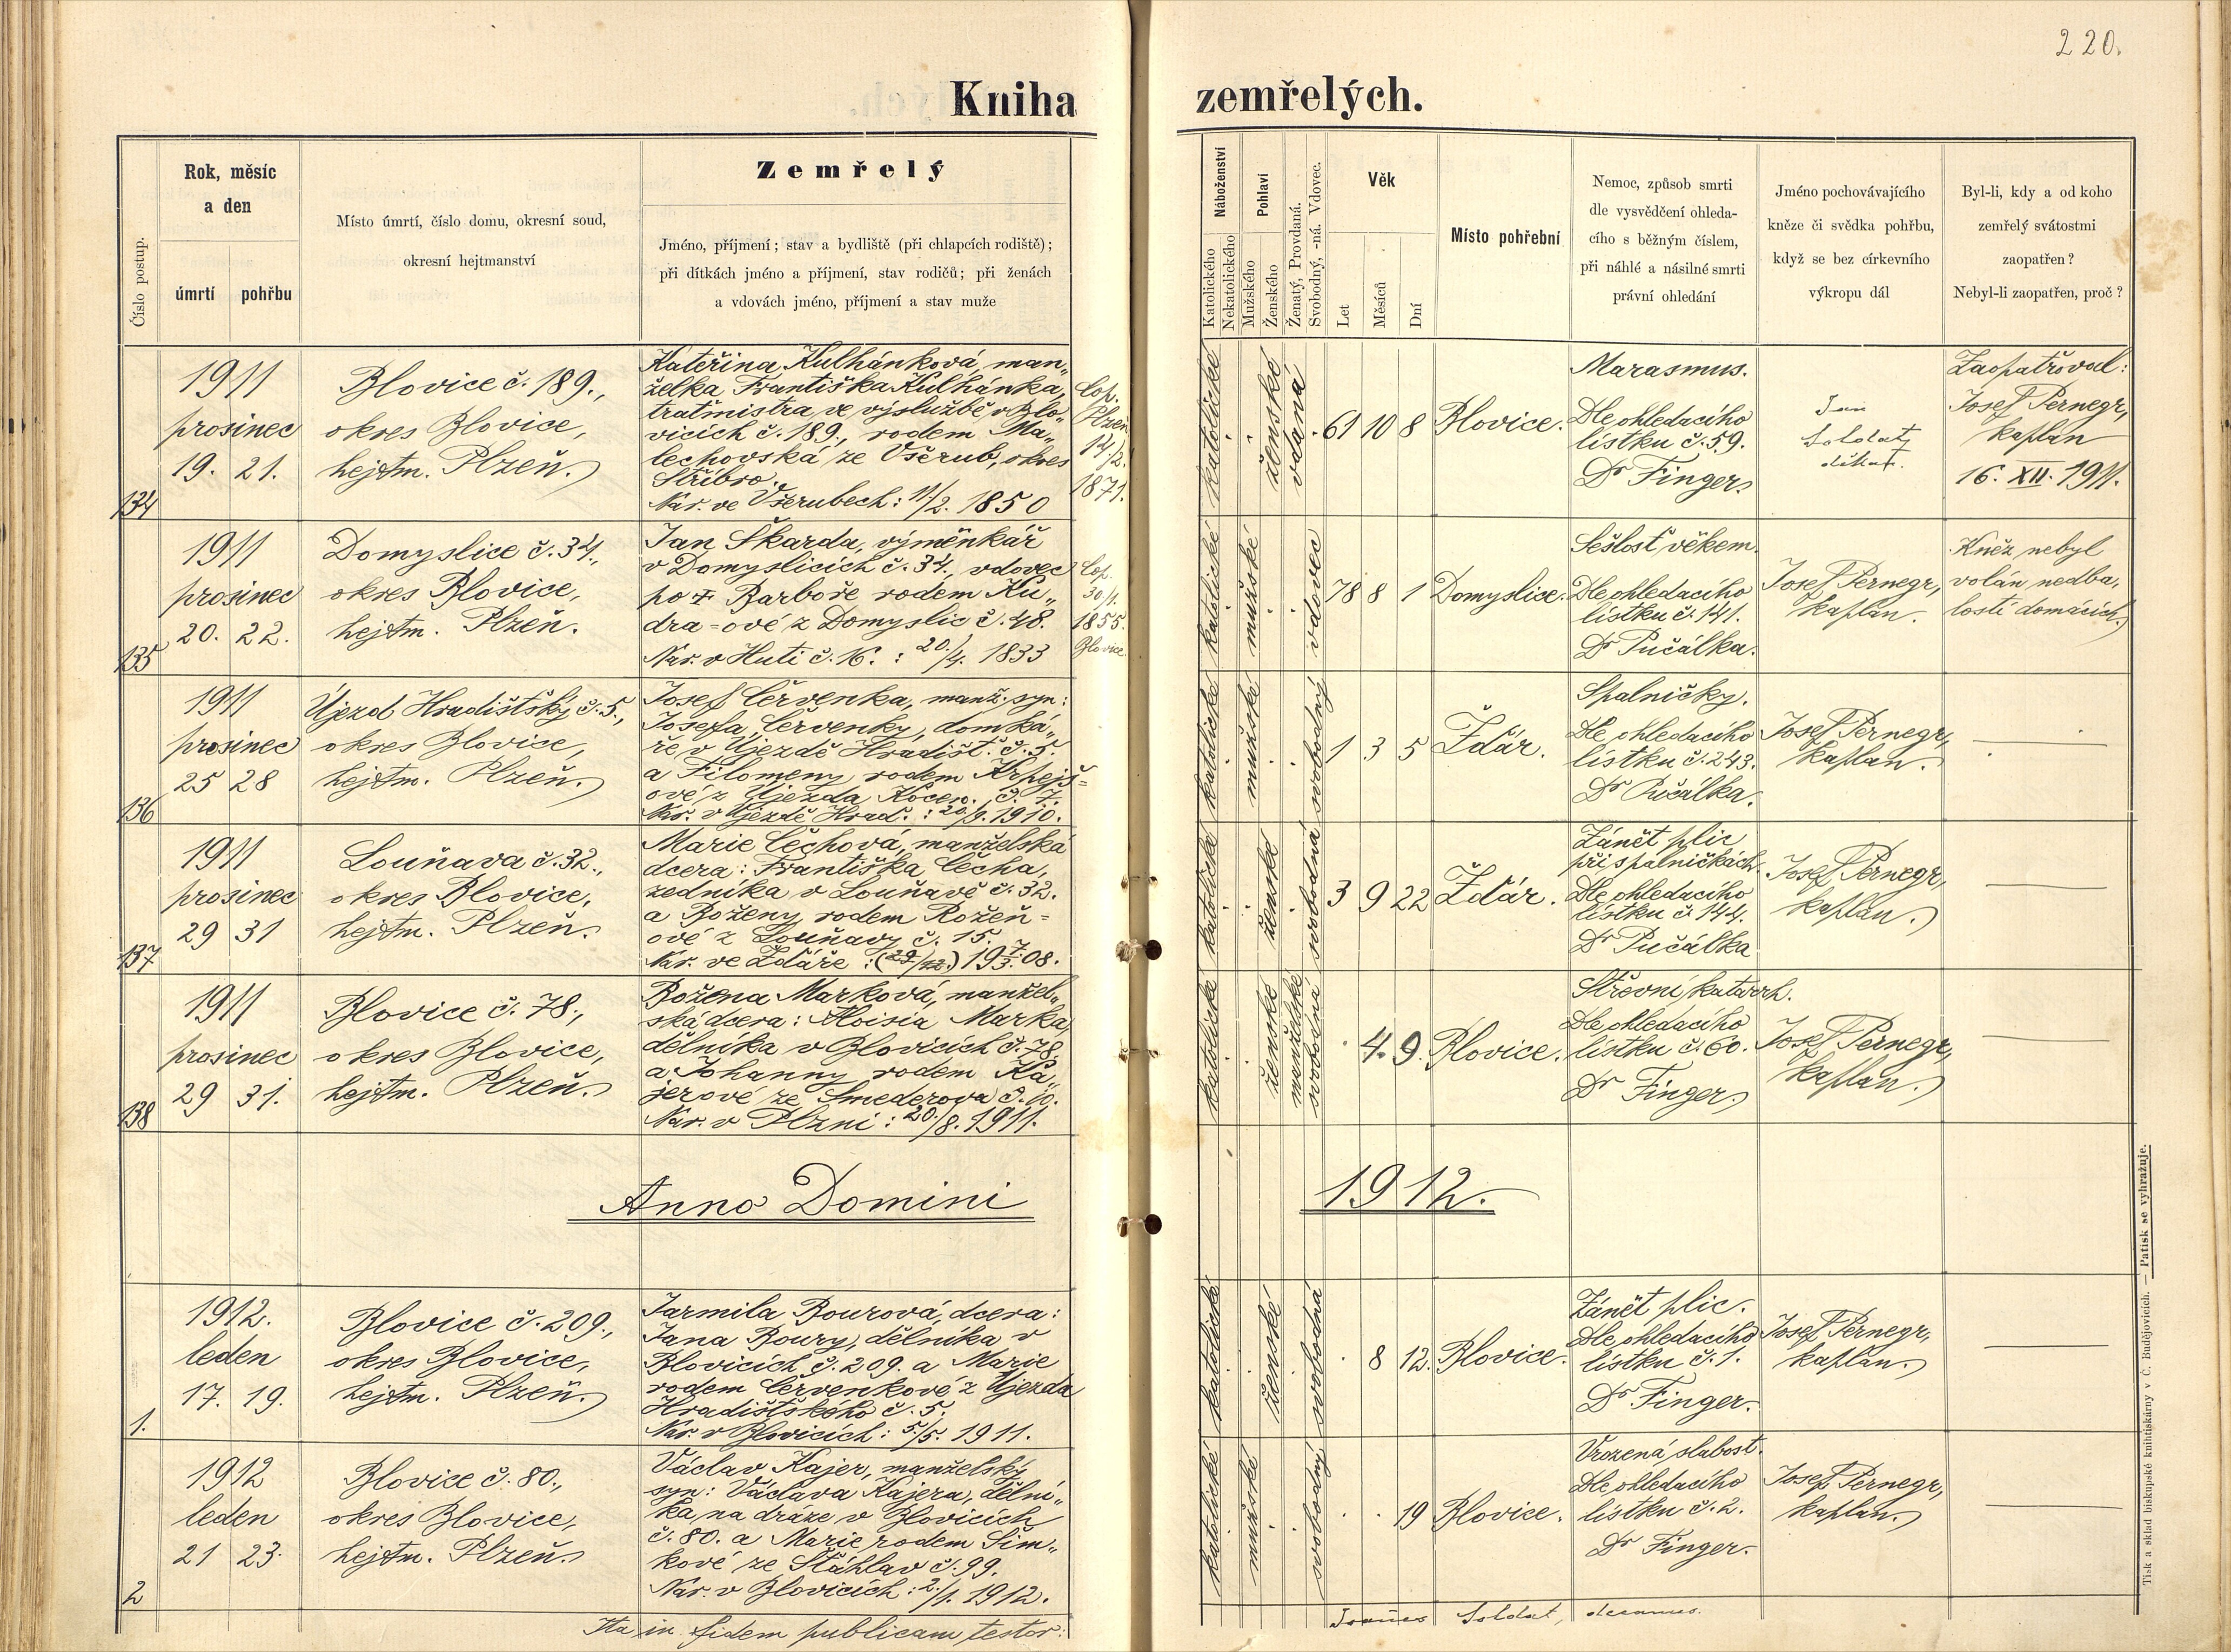 220.
Kniha zemřelých.
Číslo postup.
Rok, měsíc
a den
úmrtí
pohřbu
Místo úmrtí, číslo domu, okresní soud,
okresní hejtmanství
Zemřelý
Jméno, příjmení; stav a bydliště (při chlapcích rodiště);
při dítkách jméno a příjmení, stav rodičů; při ženách
a vdovách jméno, příjmení a stav muže
Náboženství
Katolického
Nekatolického
Pohlaví
Mužského
Ženského
Ženatý, Provdaná.
Svobodný, -ná. Vdovec.
Věk
Let
Měsíců
Dní
Místo pohřební
Nemoc, způsob smrti
dle vysvědčení ohleda-
cího s běžným číslem,
při náhlé a násilné smrti
právní ohledání
Jméno pochovávajícího
kněze či svědka pohřbu,
když se bez církevního
výkropu dál
Byl-li, kdy a od koho
zemřelý svátostmi
zaopatřen?
Nebyl-li zaopatřen, proč?
134
1911
prosinec
19. 21.
Blovice č. 189.,
okres Blovice,
hejtm. Plzeň.
Kateřina Kulhánková, man„
želka Františka Kulhánka,
traťmistra ve výslužbě v Blo„
vicích č. 189., rodem Ma„
lechovská ze Všerub, okres
Stříbro.
Nar. ve Všerubech: 11/2. 1850
Cop.
Plzeň
14/2.
1871.
katolické
ženské
vdaná
61 10 8
Blovice.
Marasmus.
Dle ohledacího
lístku č. 59.
Dr Finger.
Jan
Soldát,
děkan.
Zaopatřoval:
Josef Pernegr,
kaplan
16. XII. 1911.
135
1911
prosinec
20. 22.
Domyslice č. 34.,
okres Blovice,
hejtm. Plzeň.
Jan Škarda, výměnkář
v Domyslicích č. 34., vdovec
po † Barboře rodem Ku„
dra=ové z Domyslic č. 48.
Nar. v Huti č. 16. : 20./4. 1833
Cop.
30/1.
1855.
Blovice.
katolické
mužské
vdovec
78 8 1
Domyslice.
Sešlosť věkem.
Dle ohledacího
lístku č. 141.
Dr Pučálka.
Josef Pernegr,
kaplan.
Kněz nebyl
volán nedba„
lostí domácích.
136
1911
prosinec
25 28
Újezd Hradištský č. 5.,
okres Blovice,
hejtm. Plzeň.
Josef Červenka, manž. syn:
Josefa Červenky, domká„
ře v Újezdě Hradišt. č. 5.
a Filomeny rodem Krpejš=
ové z Újezda Kocen. č. 7.
Nar. v Újezdě Hrad. : 20/9. 1910.
katolické
mužské
svobodný
1 3 5
Žďár.
Spalničky.
Dle ohledacího
lístku č. 243.
Dr Pučálka.
Josef Pernegr,
kaplan.
137
1911
prosinec
29 31
Louňava č. 32.,
okres Blovice,
hejtm. Plzeň.
Marie Čechová, manželská
dcera: Františka Čecha,
zedníka v Louňavě č. 32.
a Boženy rodem Rožeň=
ové z Louňavy č. 15.
Nar. ve Žďáře : (29/12.) 19 7/3. 08.
katolické
ženské
svobodná
3 9 22
Žďár.
Zánět plic
při spalničkách.
Dle ohledacího
lístku č. 144.
Dr Pučálka
Josef Pernegr,
kaplan.
138
1911
prosinec
29 31.
Blovice č. 78.,
okres Blovice,
hejtm. Plzeň.
Božena Marková, manžel„
ská dcera: Aloisia Marka,
dělníka v Blovicích č. 78
a Johanny rodem Ka„
jerové ze Smederova č. 10.
Nar. v Plzni : 20./8. 1911.
katolické
ženské
manželské
svobodná
4. 9.
Blovice.
Střevní katarrh.
Dle ohledacího
lístku č. 60.
Dr Finger.
Josef Pernegr,
kaplan.
Anno Domini 1912.
1.
1912.
leden
17. 19.
Blovice č. 209.,
okres Blovice,
hejtm. Plzeň.
Jarmila Bourová, dcera:
Jana Boury, dělníka v
Blovicích č. 209. a Marie
rodem Červenkové z Újezda
Hradištského č. 5.
Nar. v Blovicích: 5./5. 1911.
katolické
ženské
svobodná
8 12.
Blovice.
Zánět plic.
Dle ohledacího
lístku č. 1.
Dr Finger.
Josef Pernegr,
kaplan.
2
1912
leden
21 23.
Blovice č. 80.,
okres Blovice,
hejtm. Plzeň.
Václav Kajer, manželský
syn: Václava Kajera, dělní„
ka na dráze v Blovicích
č. 80. a Marie rodem Šim„
kové ze Šťáhlav č. 99.
Nar. v Blovicích : 2./1. 1912.
katolické
mužské
svobodný
19
Blovice.
Vrozená slabost.
Dle ohledacího
lístku č. 2.
Dr Finger.
Josef Pernegr,
kaplan.
Ita in fidem publicam testor: Joannes Soldat, decanus.
Tisk a sklad biskupské knihtiskárny v Č. Budějovicích. — Patisk se vyhražuje.